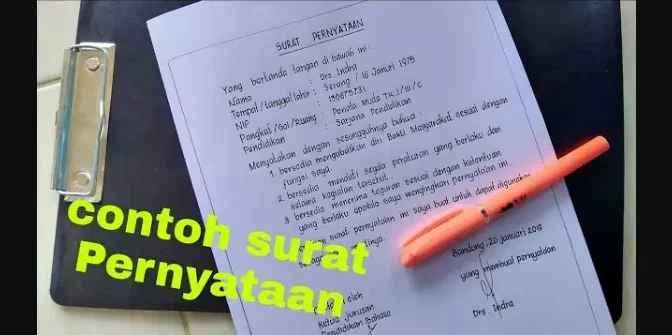 SURAT PERNYATAAN
Yang bertanda tangan di bawah ini :
Nama : Drs. Indra
Tempat/tanggal lahir : Serang / 16 Januri 1975
NIP : 130675731
Pangkat/Gol/Ruang : Penata Muda TK.1/III/C
Pendidikan : Sarjana Pendidikan
Menyatakan dengan sesungguhnya bahwa :
1. bersedia mengabdikan diri Bakti Masyarakat sesuai dengan
fungsi saya.
2. bersedia mentaati segala peraturan yang berlaku dan
selama kegiatan tersebut.
3. bersedia menerima teguran sesuai dengan ketentuan
yang berlaku apabila saya mengingkari pernyataan ini
surat pernyataan ini saya buat untuk dapat digunakan
Bandung, 20 januari 2019
oleh
yang membuat pernyataan
Ketua Jurusan
Pendidikan Bahasa
Drs. Indra
contoh surat
Pernyataan